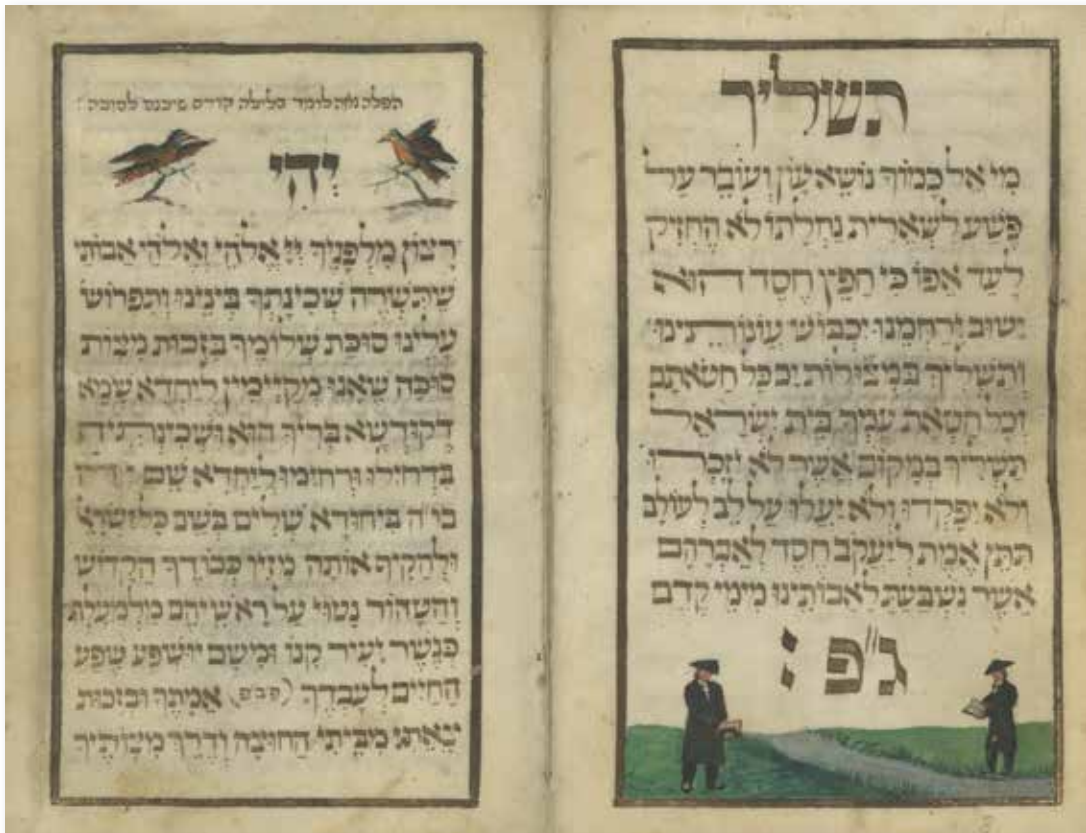 תשליך
מִי אֵל כָּמוֹךָ נוֹשֵׂא עָוֹן וְעוֹבֵר עַל
פֶּשַׁע לִשְׁאֵרִית נַחֲלָתוֹ לֹא הֶחֱזִיק
לָעַד אַפּוֹ כִּי חָפֵץ חֶסֶד הוּא
יָשׁוּב יְרַחֲמֵנוּ יִכְבּוֹשׁ עֲוֹנוֹתֵינוּ
וְתַשְׁלִיךְ בִּמְצוּלוֹת יָם כָּל חַטֹּאתָם
וְכָל חַטֹּאת עַמְּךָ בֵּית יִשְׂרָאֵל
תַּשְׁלִיךְ בְּמָקוֹם אֲשֶׁר לֹא יִזָּכְרוּ
וְלֹא יִפָּקְדוּ וְלֹא יַעֲלוּ עַל לֵב לְעוֹלָם
תִּתֵּן אֱמֶת לְיַעֲקֹב חֶסֶד לְאַבְרָהָם
אֲשֶׁר נִשְׁבַּעְתָּ לַאֲבוֹתֵינוּ מִימֵי קֶדֶם
ג"פ:
תפלה נאה לומר בלילה קודם שיכנס לסוכה:
יְהִי
רָצוֹן מִלְּפָנֶיךָ יְיָ אֱלֹהַי וֵאלֹהֵי אֲבוֹתַי
שֶׁתַּשְׁרֶה שְׁכִינָתְךָ בֵּינֵינוּ וְתִפְרוֹשׂ
עָלֵינוּ סוּכַּת שְׁלוֹמֶךָ בִּזְכוּת מִצְוֹת
סוּכָּה שֶׁאָנוּ מְקַיְּימִין לְיַחֲדָא שְׁמָא
דְקוּדְשָׁא בְּרִיךְ הוּא וּשְׁכִינְתֵּיהּ
בִּדְחִילוּ וּרְחִימוּ לְיַחֲדָא שֵׁם
בו"ה בְּיִחוּדָא שְׁלִים בְּשֵׁם כָּל יִשְׂרָאֵל
וּלְהַקִּיף אוֹתָהּ מִזִּיו כְּבוֹדֶךָ הַקָּדוֹשׁ
וְהַטָּהוֹר נָטוּי עַל רָאשֵׁיהֶם מִלְמַעְלָה
כְּנֶשֶׁר יָעִיר קִנּוֹ וּמִשָּׁם יוּשְׁפַּע שֶׁפַע
הַחַיִּים לְעַבְדְּךָ אֲמָתֶךָ וּבִזְכוּת
יְצֵאָתִי מִבֵּיתִי הַחוּצָה וְדֶרֶךְ מִצְוֹתֶיךָ